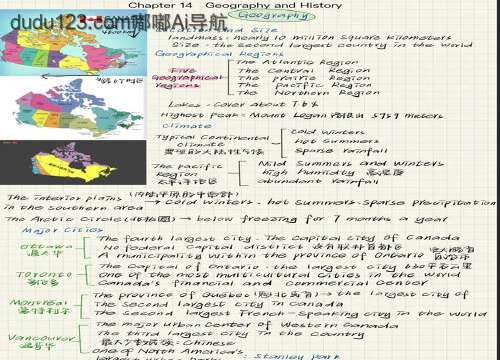 Chapter 14 Geography and History
dudu123.com嘟嘟Ai导航
Geography
Location and Size
landmass: nearly 10 million square kilometers
Size: the second largest country in the world
Geographical Regions
Five Geographical regions
The Atlantic Region
The Central Region
The prairie Region
The pacific Region
The Northern Region
Lakes - cover about 7.6%
Highest peak: Mount Logan 5959 meters
Climate
Typical Continental climate
典型的大陆性气候
Cold winters
hot summers
sparse rainfall
The pacific region
太平洋地区
Mild summers and winters
high humidity 高湿度
abundant rainfall
The interior plains
in the southern area
→ Cold winters. hot summers. sparse precipitation
The Arctic Circle (北极圈) → below freezing for 7 months a year
Major Cities
Ottawa
渥太华
The fourth largest city. The capital city of Canada
No federal capital district 没有联邦首都区
A municipality within the province of Ontario
Toronto
多伦多
The capital of Ontario - the largest city
One of the most multicultural cities in the world
Canada's financial and commercial center
Montreal
蒙特利尔
The province of Quebec → the largest city of
The second largest city in Canada
The second largest French-speaking city in the world
Vancouver
温哥华
The major urban center of Western Canada
The third largest city in the country
最大少数民族: Chinese
one of North America's
Stanley Park